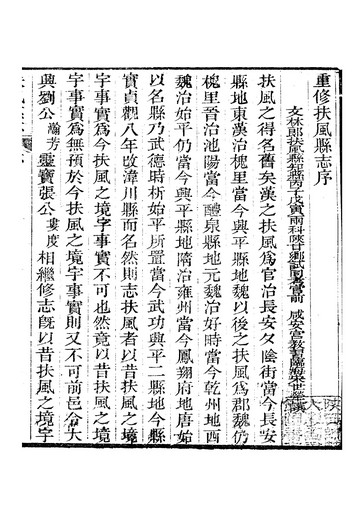 重修扶風縣志序
文林郎扶風縣知縣丙子戊寅兩科陝甘鄉試同考官前咸安宮教習
扶風之得名舊矣漢之扶風為官治長安夕陰街當今長安
縣地東漢治槐里當今興平縣地魏以後之扶風為郡魏仍
槐里晉治池陽當今醴泉縣地元魏治好時當今乾州地西
魏治始平仍當今興平縣地隋治雍州當今鳳翔府地唐始
以名縣乃武德時析始平所置當今武功興平二縣地今縣
實貞觀八年改湋川縣而名然則志扶風者以昔扶風之境
字事實為今扶風之境字事實不可也然竟以昔扶風之境
字事實為無預於今扶風之境字事實則又不可前邑令大
興劉公瀚芳靈寶張公婁度相繼修志旣以昔扶風之境字